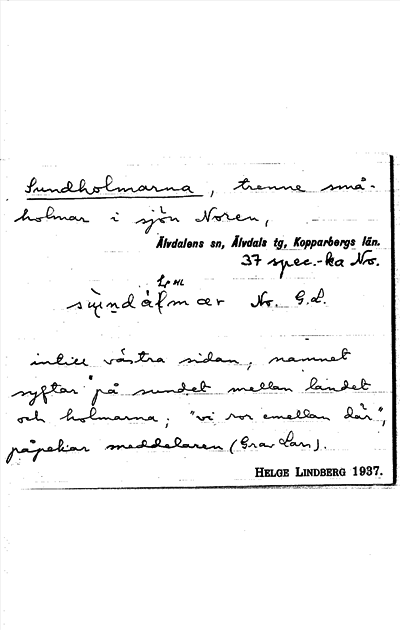 Sundholmarna, trenne små-
holmar i sjön Noren,
Älvdalens sn, Älvdals tg, Kopparbergs län.
37 spec.-ka No.
No. G.L.
intill västra sidan, namnet
syftar på sundet mellan landet
och holmarna; "vi ror emellan där",
påpekar meddelaren (Grav Lars).
HELGE LINDBERG 1937.